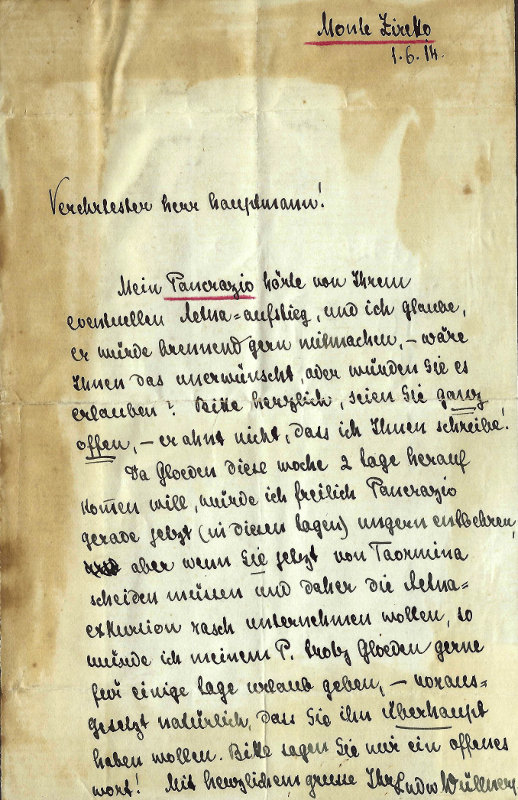 Monte Ziretto
1.6.14.
Verehrtester herr hauptmann!
Mein Pancrazio hörte von Ihrem
eventuellen Aetna=aufstieg, und ich glaube,
er würde brennend gern mitmachen, – wäre
Ihnen das unerwünscht, oder würden Sie es
erlauben? Bitte herzlich, seien Sie ganz
offen, – er ahnt nicht, dass ich Ihnen schreibe!
Da Gloeden diese woche 2 tage herauf
kom̄en will, würde ich freilich Pancrazio
gerade jetzt (in diesen tagen) ungern entbehren,
aber wenn Sie jetzt von Taormina
scheiden müssen und daher die Aetna=
exkursion rasch unternehmen wollen, so
würde ich meinem P. trotz Gloeden gerne
einige tage urlaub geben, – voraus=
gesetzt natürlich, dass Sie ihn überhaupt
haben wollen. Bitte sagen Sie mir ein offenes
wort! Mit herzlichem grusse Ihr Ludw Wüllner